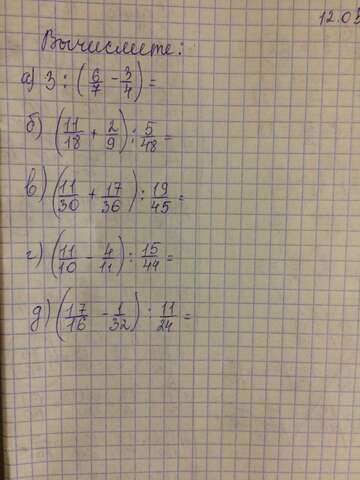 12.03
Вычислите:
а) 3 : (6/7 - 3/4) =
б) (11/18 + 2/9) : 5/48 =
в) (11/30 + 17/36) : 19/45 =
г) (11/10 - 4/11) : 15/44 =
д) (17/16 - 1/32) : 11/24 =